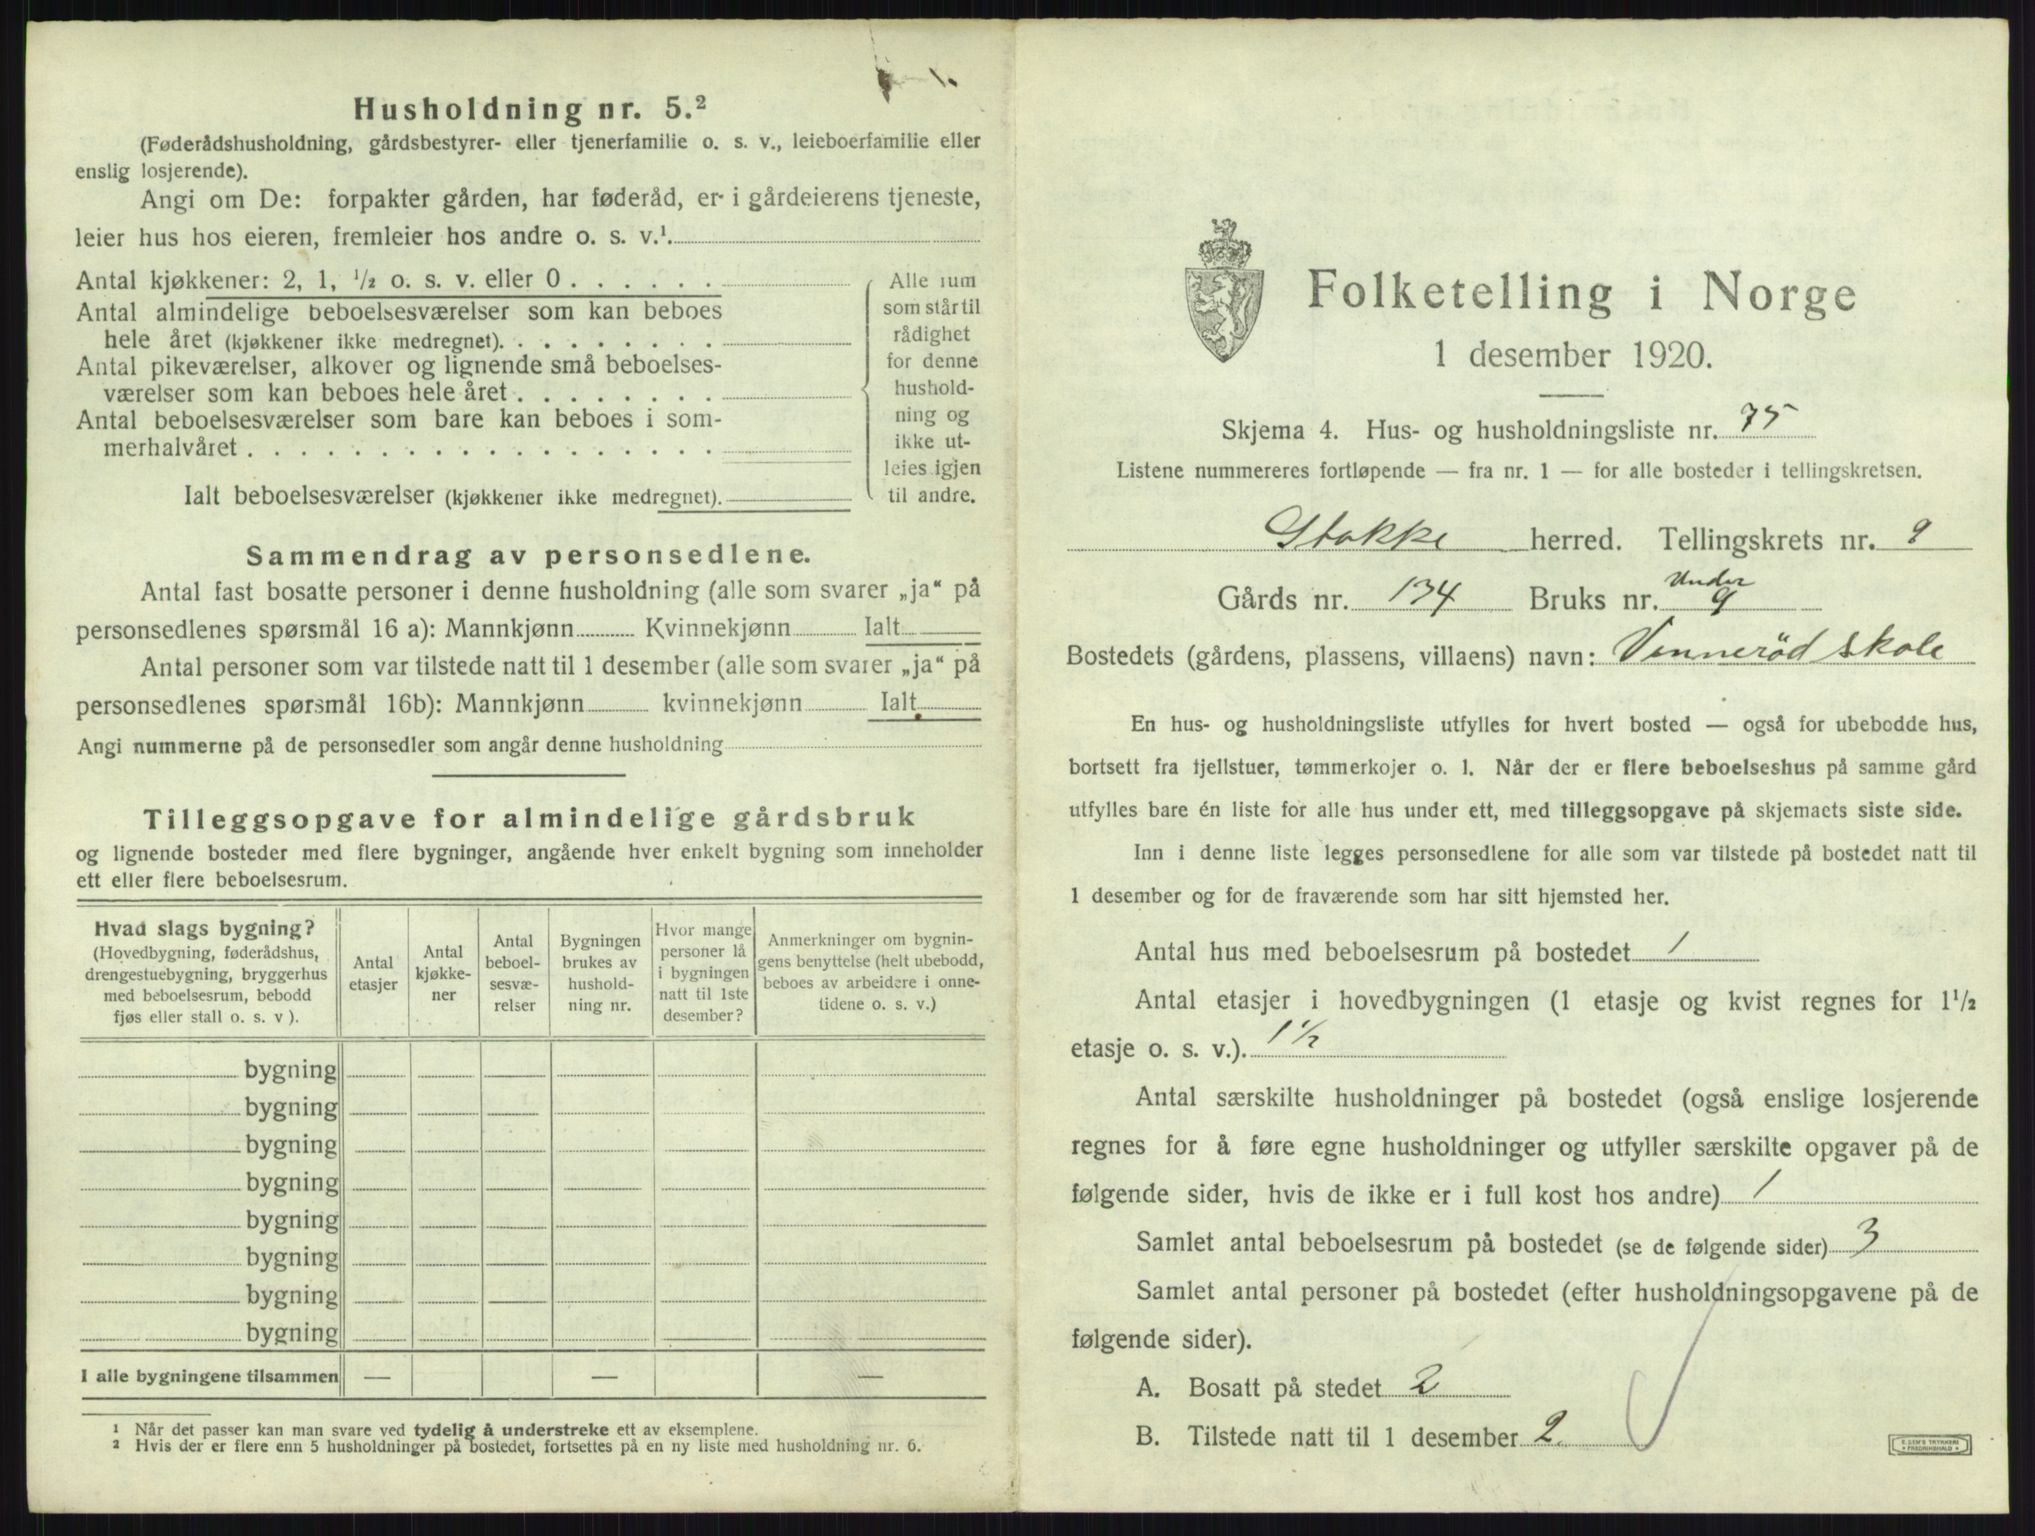 Husholdning nr. 5.²
(Føderådshusholdning, gårdsbestyrer- eller tjenerfamilie o. s. v., leieboerfamilie eller
enslig losjerende).
Angi om De: forpakter gården, har føderåd, er i gårdeierens tjeneste,
leier hus hos eieren, fremleier hos andre o. s. v.¹.
Antal kjøkkener: 2, 1, ½ o. s. v. eller 0 . . . . . .
Antal almindelige beboelsesværelser som kan beboes
hele året (kjøkkener ikke medregnet). . . . . . . . .
Antal pikeværelser, alkover og lignende små beboelses-
værelser som kan beboes hele året . . . . . . . .
Antal beboelsesværelser som bare kan beboes i som-
merhalvåret . . . . . . . . . . . . . . . . . .
Ialt beboelsesværelser (kjøkkener ikke medregnet).
Alle rum
som står til
rådighet
for denne
hushold-
ning og
ikke ut-
leies igjen
til andre.
Sammendrag av personsedlene.
Antal fast bosatte personer i denne husholdning (alle som svarer „ja“ på
personsedlenes spørsmål 16 a): Mannkjønn Kvinnekjønn Ialt
Antal personer som var tilstede natt til 1 desember (alle som svarer „ja“ på
personsedlenes spørsmål 16b): Mannkjønn kvinnekjønn Ialt
Angi nummerne på de personsedler som angår denne husholdning
Tilleggsopgave for almindelige gårdsbruk
og lignende bosteder med flere bygninger, angående hver enkelt bygning som inneholder
ett eller flere beboelsesrum.
Hvad slags bygning?
(Hovedbygning, føderådshus,
drengestuebygning, bryggerhus
med beboelsesrum, bebodd
fjøs eller stall o. s. v ).
Antal
etasjer
Antal
kjøkke-
ner
Antal
beboel-
sesvæ-
relser
Bygningen
brukes av
hushold-
ning nr.
Hvor mange
personer lå
i bygningen
natt til 1ste
desember?
Anmerkninger om bygnin-
gens benyttelse (helt ubebodd,
beboes av arbeidere i onne-
tidene o. s. v.)
bygning
bygning
bygning
bygning
bygning
bygning
bygning
bygning
I alle bygningene tilsammen — — —
¹ Når det passer kan man svare ved tydelig å understreke ett av eksemplene.
² Hvis der er flere enn 5 husholdninger på bostedet, fortsettes på en ny liste med husholdning nr. 6.
Folketelling i Norge
1 desember 1920.
Skjema 4. Hus- og husholdningsliste nr. 75
Listene nummereres fortløpende — fra nr. 1 — for alle bosteder i tellingskretsen.
Stokke herred. Tellingskrets nr. 9
Under
Gårds nr. 134 Bruks nr. 9
Bostedets (gårdens, plassens, villaens) navn: Vennerød skole
En hus- og husholdningsliste utfylles for hvert bosted — også for ubebodde hus,
bortsett fra fjellstuer, tømmerkojer o. l. Når der er flere beboelseshus på samme gård
utfylles bare én liste for alle hus under ett, med tilleggsopgave på skjemaets siste side.
Inn i denne liste legges personsedlene for alle som var tilstede på bostedet natt til
1 desember og for de fraværende som har sitt hjemsted her.
Antal hus med beboelsesrum på bostedet 1
Antal etasjer i hovedbygningen (1 etasje og kvist regnes for 1½
etasje o. s. v.). 1½
Antal særskilte husholdninger på bostedet (også enslige losjerende
regnes for å føre egne husholdninger og utfyller særskilte opgaver på de
følgende sider, hvis de ikke er i full kost hos andre) 1
Samlet antal beboelsesrum på bostedet (se de følgende sider) 3
Samlet antal personer på bostedet (efter husholdningsopgavene på de
følgende sider).
A. Bosatt på stedet 2
B. Tilstede natt til 1 desember 2
E. SEM'S TRYKKERI
FREDRIKSHALD